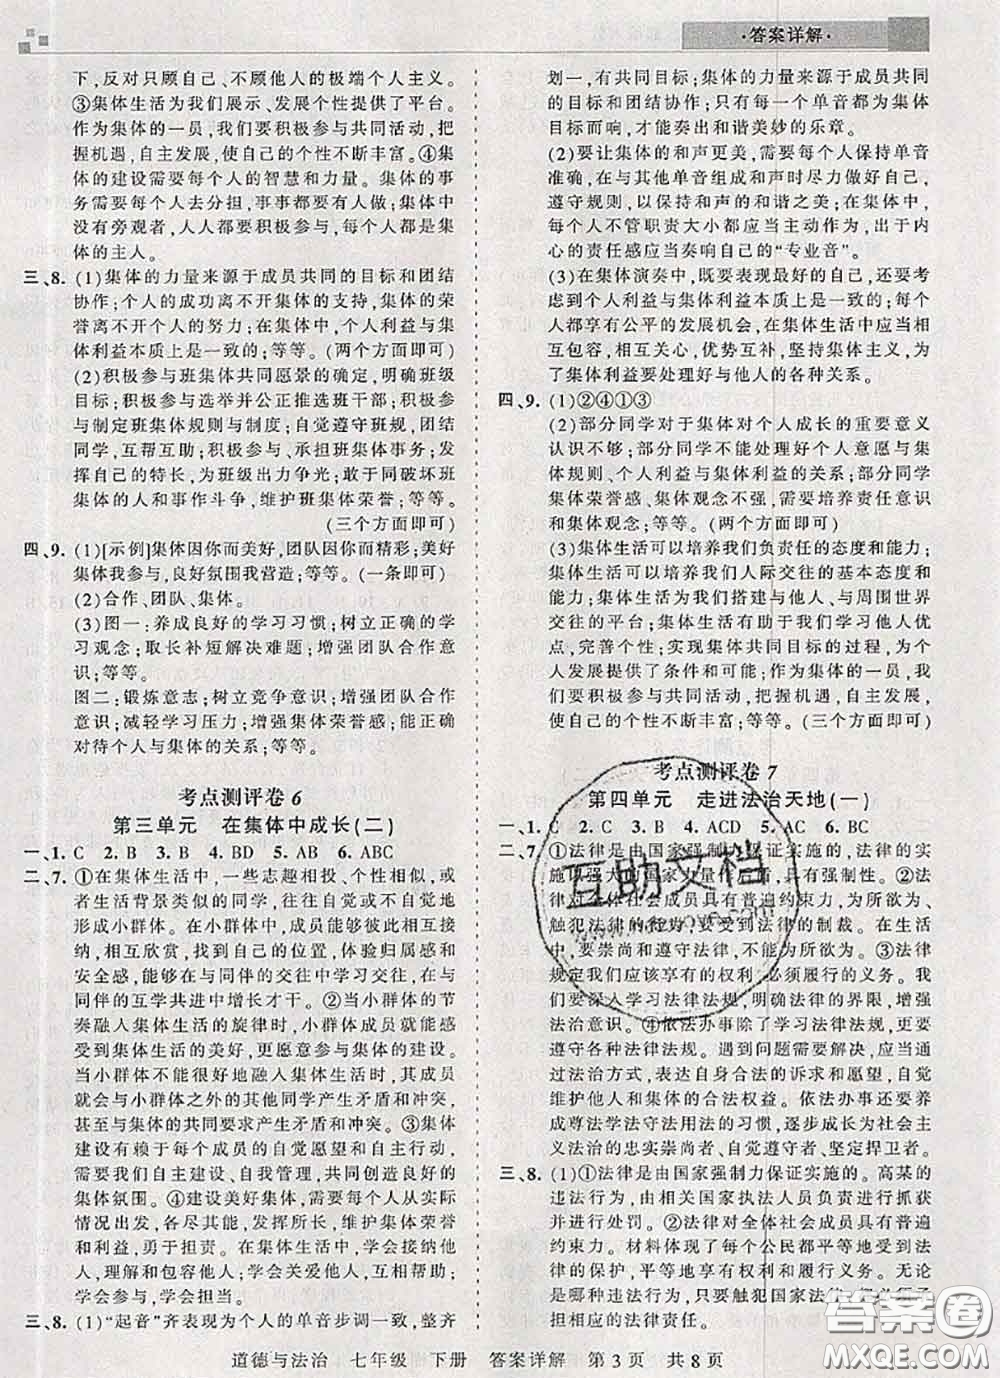 ·答案详解·
下,反对只顾自己、不顾他人的极端个人主义。
③集体生活为我们展示、发展个性提供了平台。
作为集体的一员,我们要积极参与共同活动,把
握机遇,自主发展,使自己的个性不断丰富。④集
体的建设需要每个人的智慧和力量。集体的事
务需要每个人去分担,事事都要有人做;集体中
没有旁观者,人人都要积极参与,每个人都是集
体的主人。
三、8. (1)集体的力量来源于成员共同的目标和团结
协作;个人的成功离不开集体的支持,集体的荣
誉离不开个人的努力;在集体中,个人利益与集
体利益本质上是一致的;等等。(两个方面即可)
(2)积极参与班集体共同愿景的确定,明确班级
目标;积极参与选举并公正推选班干部;积极参
与制定班集体规则与制度;自觉遵守班规,团结
同学,互帮互助;积极参与、承担班集体事务;发
挥自己的特长,为班级出力争光;敢于同破坏班
集体的人和事作斗争,维护班集体荣誉;等等。
(三个方面即可)
四、9. (1)[示例]集体因你而美好,团队因你而精彩;美好
集体我参与,良好氛围我营造;等等。(一条即可)
(2)合作、团队、集体。
(3)图一:养成良好的学习习惯;树立正确的学
习观念;取长补短解决难题;增强团队合作意
识;等等。
图二:锻炼意志;树立竞争意识;增强团队合作
意识;减轻学习压力;增强集体荣誉感;能正确
对待个人与集体的关系;等等。
考点测评卷 6
第三单元 在集体中成长(二)
一、1. C 2. B 3. B 4. BD 5. AB 6. ABC
二、7. ①在集体生活中,一些志趣相投、个性相似,或
者生活背景类似的同学,往往自觉或不自觉地
形成小群体。在小群体中,我们相互理解和接
纳,相互欣赏,找到自己的位置,体验归属感和
安全感,能够在与同伴的交往中学习交往,在与
同伴的互学共进中增长才干。②当小群体的节
奏融入集体生活的旋律时,小群体成员就能感
受到集体生活的美好,更愿意参与集体的建设。
当小群体不能很好地融入集体生活时,其成员
会与小群体之外的其他同学产生矛盾和冲突,
甚至与集体的共同要求产生矛盾和冲突。③集体
建设有赖于每个成员的自觉愿望和自主行动。
我们要自主建设、自我管理,共同创造良好的
集体氛围。④建设集体,每个人从自己的实际
情况出发,各尽其能,发挥所长,维护集体荣誉
和利益,勇于担责。在集体交往中,学会接纳他
人,理解和包容他人;学会关爱他人,互相帮助;
学会参与,学会担当。
三、8. (1)“起音”齐表现为个人的单音步调一致,整齐
划一,有共同目标;集体的力量来源于成员共同
的目标和团结协作;只有每一个单音都为集体
目标而响,才能奏出和谐美妙的乐章。
(2)要让集体的和声更美,需要每个人保持单音
准确,在与其他单音组成和声时尽力做好自己,
遵守规则,以保持和声的和谐之美;在集体中,
每个人不管职责大小都应当主动作为,出于
内心的责任感应当奏响自己的“专业音”。
(3)在集体演奏中,既要表现最好的自己,还要考
虑到个人利益与集体利益本质是一致的;每个
人都享有公平的发展机会,在集体生活中应当相
互包容,相互关心,优势互补,坚持集体主义,为
了集体利益要处理好与他人的各种关系。
四、9. (1)②④①③
(2)部分同学对于集体对个人成长的重要意义
认识不够;部分同学不能处理好个人意愿与集
体规则、个人利益与集体利益的关系;部分同学
集体荣誉感、集体观念不强,需要培养责任意识
和集体观念;等等。(两个方面即可)
(3)集体生活可以培养我们负责任的态度和能力;
集体生活可以培养我们人际交往的基本态度和
能力;集体生活为我们搭建与他人、与周围世界
交往的平台;集体生活有助于我们学习他人优
点,完善个性;实现集体共同目标的过程,为个
人发展提供了条件和可能;作为集体的一员,我
们要积极参与共同活动,把握机遇,自主发展,
使自己的个性不断丰富;等等。(三个方面即可)
考点测评卷 7
第四单元 走进法治天地(一)
一、1. C 2. C 3. B 4. ACD 5. AC 6. BC
二、7. ①法律是由国家强制力保证实施的,法律的实
施以强大的国家力量作后盾,具有强制性。②法
律对全体社会成员具有普遍约束力。为所欲为、
触犯法律的行为,要受到法律的制裁。在生活
中,要崇尚和遵守法律,不能为所欲为。③法律
规定我们应该享有的权利、必须履行的义务。我
们要深入学习法律法规,明确法律的界限,增强
法治意识。④依法办事除了学习法律法规,更要
遵守各种法律法规。遇到问题需要解决,应当通
过法治方式,表达自身合法的诉求和愿望,自觉
维护他人和自己的合法权益。依法办事还要养
成尊法学法守法用法的习惯,逐步成长为社会主
义法治的忠实崇尚者、自觉遵守者、坚定捍卫者。
三、8. (1)①法律是由国家强制力保证实施的。高某的
违法行为,由相关国家执法人员负责进行抓获并
进行处罚。②法律对全体社会成员具有普遍约
束力。材料体现了每个公民都平等地受到法律
的保护,平等地享有权利和履行义务。无论
是哪种违法行为,只要触犯国家法律,都
受到法律
互助文档
答案圈
MXQE.COM
道德与法治 七年级 下册 答案详解 第 3 页 共 8 页